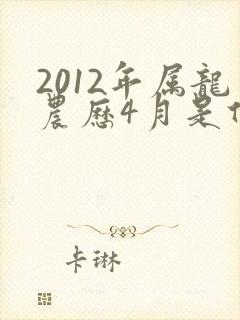 2012年属龍
農歷4月是
卡琳